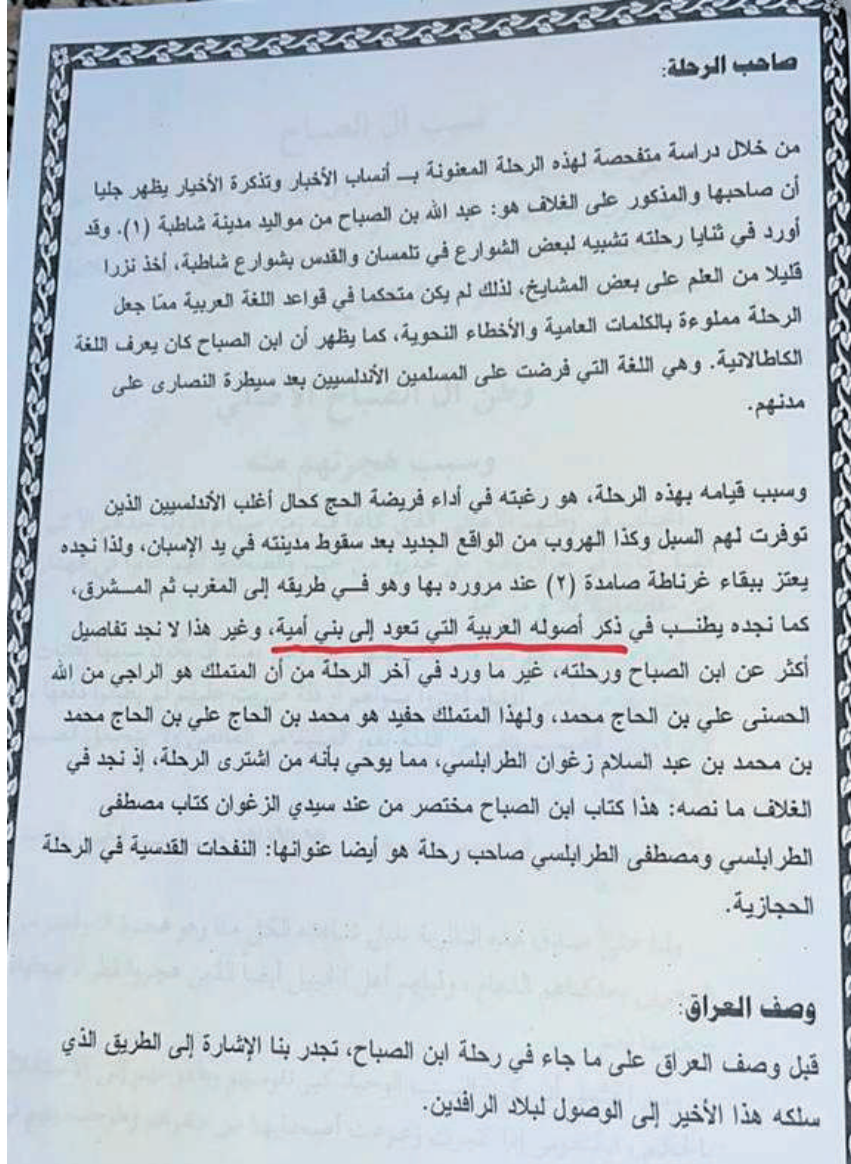 صاحب الرحلة:
من خلال دراسة متفحصة لهذه الرحلة المعنونة بـ أنساب الأخبار وتذكرة الأخيار يظهر جليا
أن صاحبها والمذكور على الغلاف هو: عبد الله بن الصباح من مواليد مدينة شاطبة (١). وقد
أورد في ثنايا رحلته تشبيه لبعض الشوارع في تلمسان والقدس بشوارع شاطبة، أخذ نزرا
قليلا من العلم على بعض المشايخ، لذلك لم يكن متحكما في قواعد اللغة العربية ممّا جعل
الرحلة مملوءة بالكلمات العامية والأخطاء النحوية، كما يظهر أن ابن الصباح كان يعرف اللغة
الكاطالانية. وهي اللغة التي فرضت على المسلمين الأندلسيين بعد سيطرة النصارى على
مدنهم.
وسبب قيامه بهذه الرحلة، هو رغبته في أداء فريضة الحج كحال أغلب الأندلسيين الذين
توفرت لهم السبل وكذا الهروب من الواقع الجديد بعد سقوط مدينته في يد الإسبان، ولذا نجده
يعتز ببقاء غرناطة صامدة (٢) عند مروره بها وهو في طريقه إلى المغرب ثم المشرق،
كما نجده يطنب في ذكر أصوله العربية التي تعود إلى بني أمية، وغير هذا لا نجد تفاصيل
أكثر عن ابن الصباح ورحلته، غير ما ورد في آخر الرحلة من أن المتملك هو الراجي من الله
الحسنى علي بن الحاج محمد، ولهذا المتملك حفيد هو محمد بن الحاج علي بن الحاج محمد
بن محمد بن عبد السلام زغوان الطرابلسي، مما يوحي بأنه من اشترى الرحلة، إذ نجد في
الغلاف ما نصه: هذا كتاب ابن الصباح مختصر من عند سيدي الزغوان كتاب مصطفى
الطرابلسي ومصطفى الطرابلسي صاحب رحلة هو أيضا عنوانها: النفحات القدسية في الرحلة
الحجازية.
وصف العراق:
قبل وصف العراق على ما جاء في رحلة ابن الصباح، تجدر بنا الإشارة إلى الطريق الذي
سلكه هذا الأخير إلى الوصول لبلاد الرافدين.